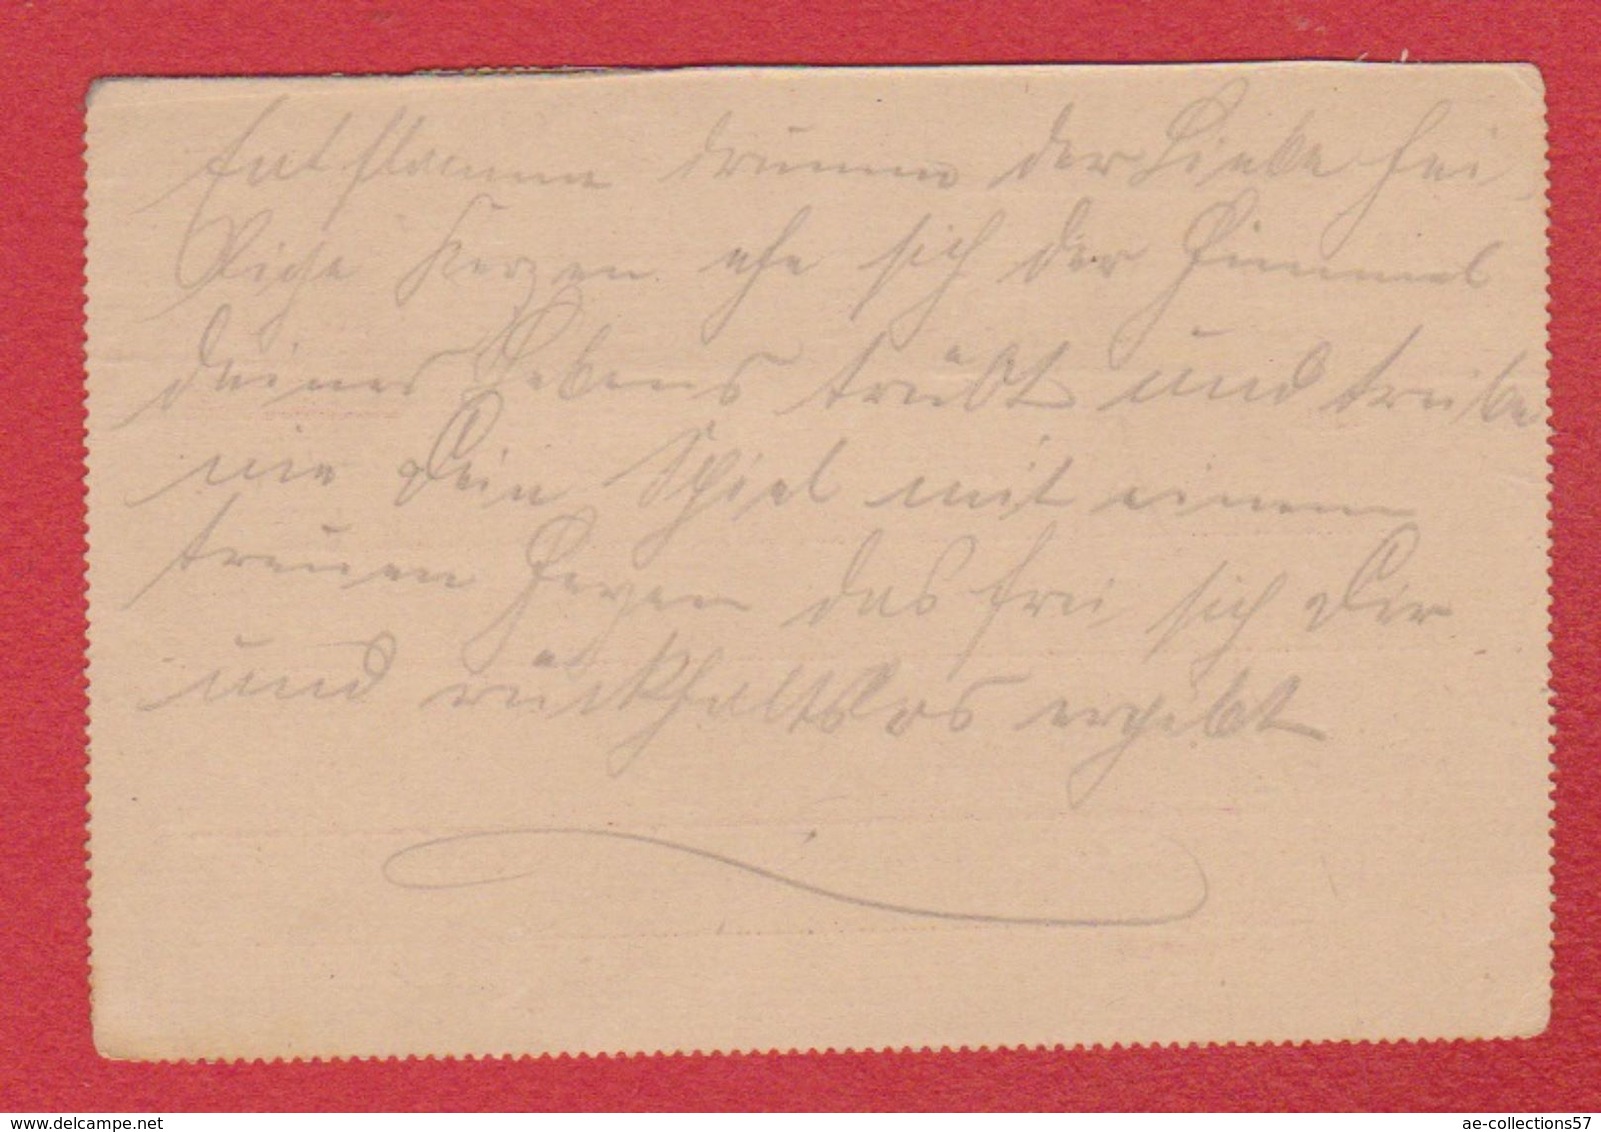 Entflamme drumm der Liebe hei-
lige Kerzen ehe sich der Himmel
deines Lebens trübt und treibe
nie Dein Spiel mit einem
treuen Herzen das frei sich Dir
und rückhaltslos ergibt
delcampe.net
ae-collections57